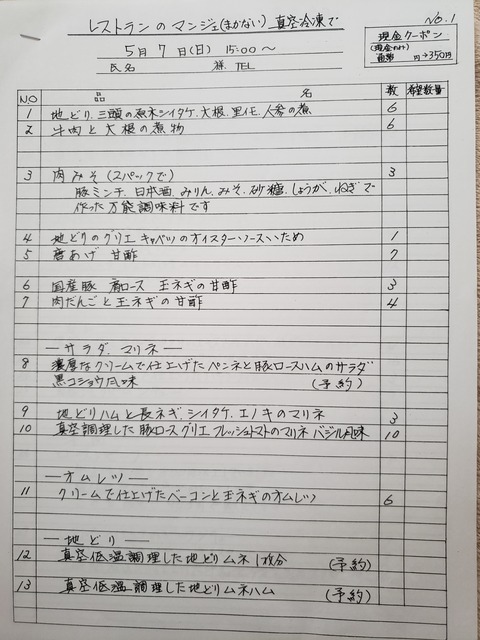 レストランのマンジェ(まかない) 真空冷凍で
No.1
5月7日(日) 15:00〜
氏名 様 TEL
現金クーポン
(現金のみ)
円→350円
NO 品 名 数 希望数量
1 地どり、三頭の原木シイタケ、大根、里イモ、人参の煮 6
2 牛肉と大根の煮物 6
3 肉みそ(2パックで) 3
豚ミンチ、日本酒、みりん、みそ、砂糖、しょうが、ねぎで
作った万能調味料です
4 地どりのグリエ キャベツのオイスターソースいため 1
5 唐あげ 甘酢 7
6 国産豚 肩ロース 玉ネギの甘酢 3
7 肉だんごと玉ネギの甘酢 4
—サラダ、マリネ—
8 濃厚なクリームで仕上げたペンネと豚ロースハムのサラダ
黒コショウ風味 (予約)
9 地どりハムと長ネギ、シイタケ、エノキのマリネ 3
10 真空調理した豚ロースグリエ フレッシュトマトのマリネ バジル風味 10
—オムレツ—
11 クリームで仕上げたベーコンと玉ネギのオムレツ 6
—地どり—
12 真空低温調理した地どりムネ1枚分 (予約)
13 真空低温調理した地どりムネハム (予約)